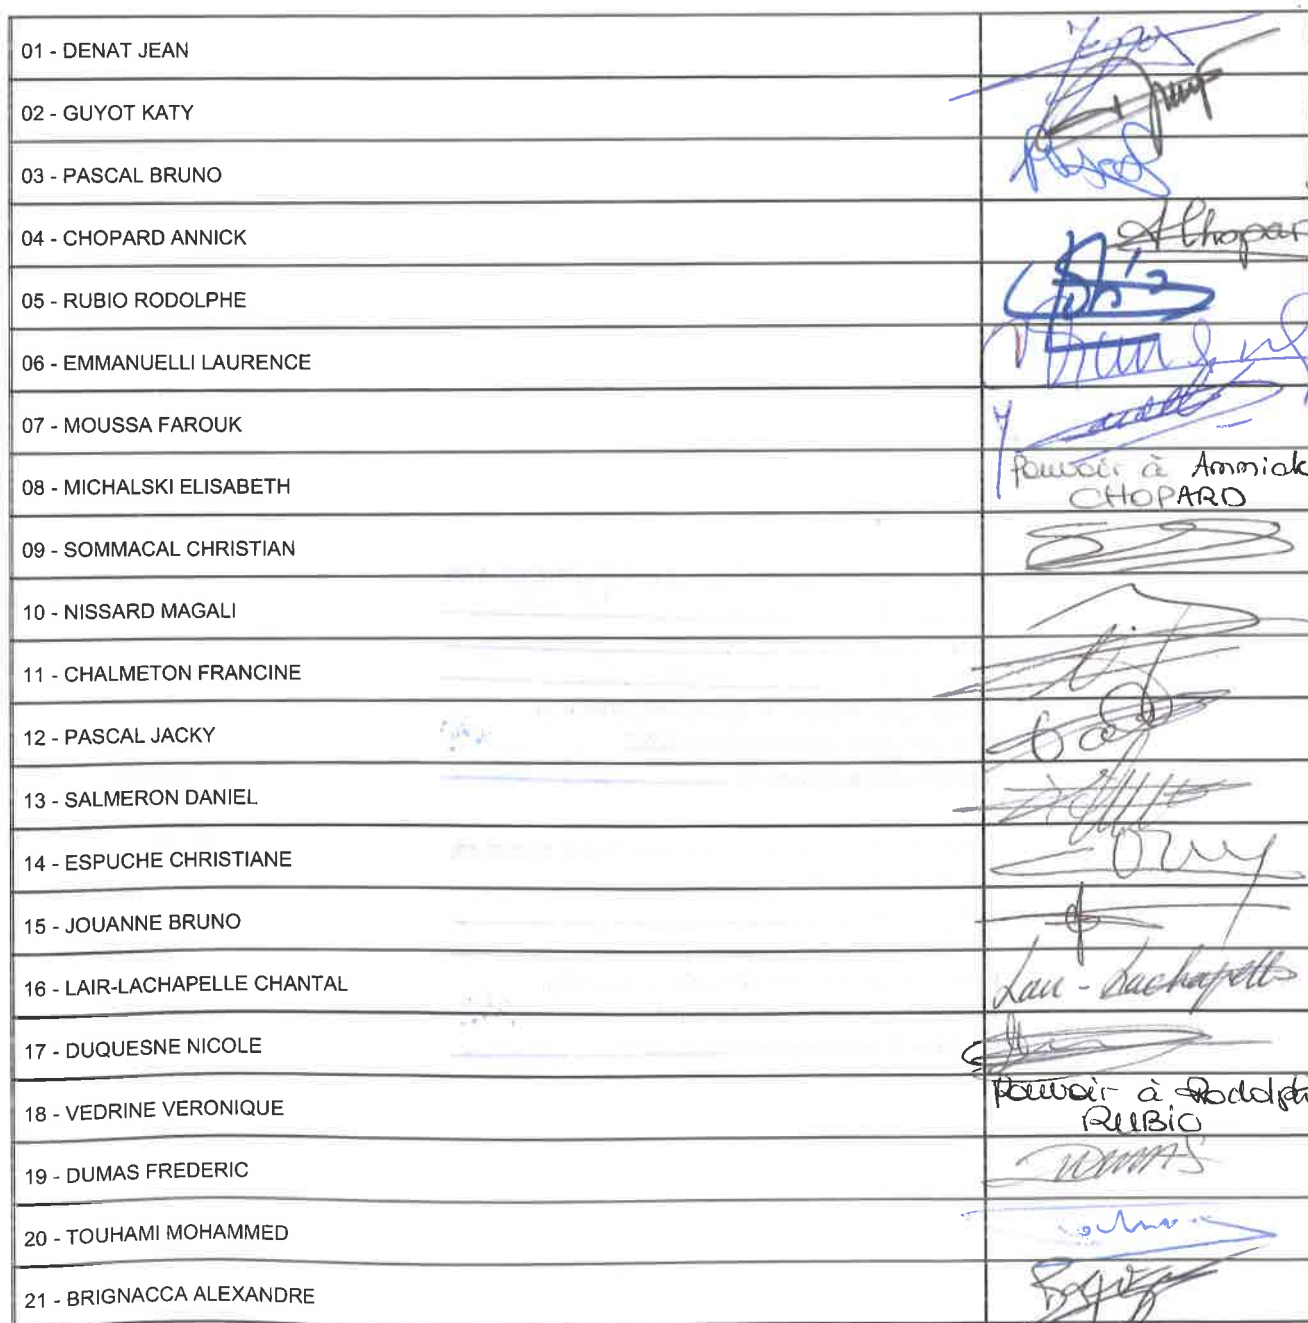 01 - DENAT JEAN
02 - GUYOT KATY
03 - PASCAL BRUNO
04 - CHOPARD ANNICK
AChopar
05 - RUBIO RODOLPHE
06 - EMMANUELLI LAURENCE
07 - MOUSSA FAROUK
08 - MICHALSKI ELISABETH
Pouvoir à Annick
CHOPARD
09 - SOMMACAL CHRISTIAN
10 - NISSARD MAGALI
11 - CHALMETON FRANCINE
12 - PASCAL JACKY
13 - SALMERON DANIEL
14 - ESPUCHE CHRISTIANE
15 - JOUANNE BRUNO
16 - LAIR-LACHAPELLE CHANTAL
Lair - Lachapelle
17 - DUQUESNE NICOLE
18 - VEDRINE VERONIQUE
Pouvoir à Rodolph
RUBIO
19 - DUMAS FREDERIC
DUMAS
20 - TOUHAMI MOHAMMED
21 - BRIGNACCA ALEXANDRE